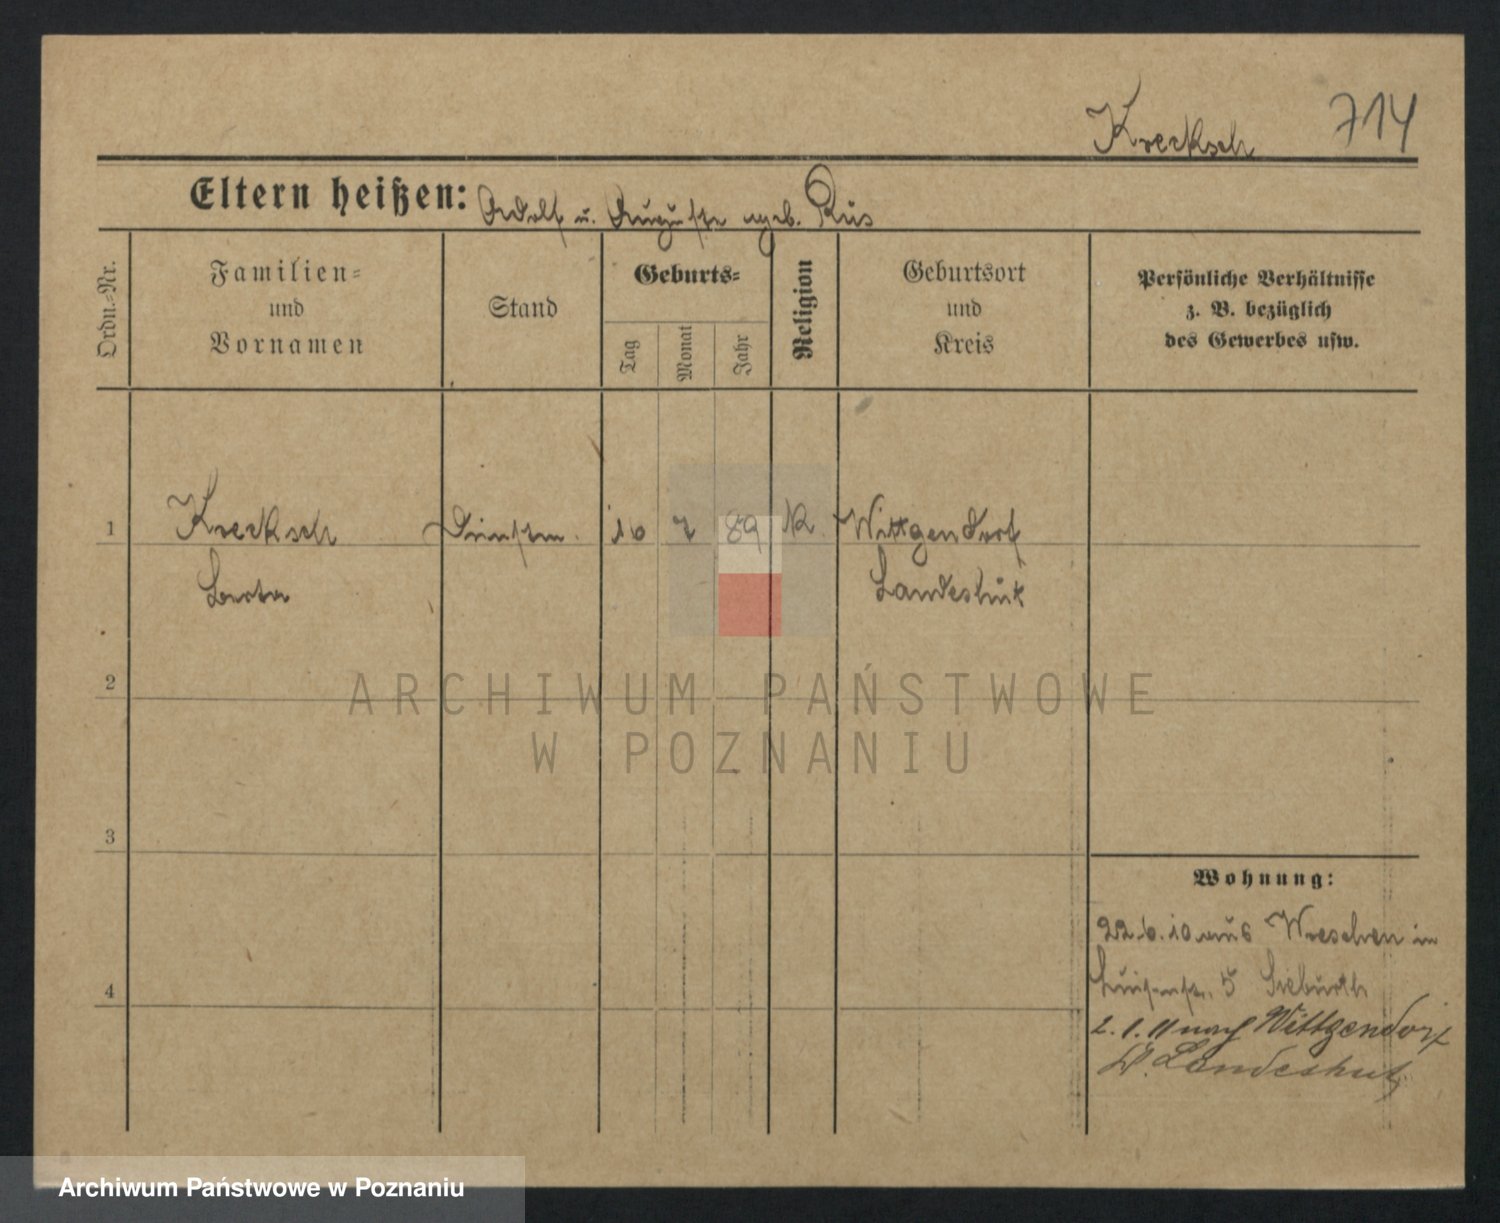 Krecksch 714
Eltern heißen: Adolf u. Auguste geb. Rus
Ordn.-Nr.
Familien-
und
Vornamen
Stand
Geburts-
Tag
Monat
Jahr
Religion
Geburtsort
und
Kreis
Persönliche Verhältnisse
z. B. bezüglich
des Gewerbes usw.
1 Krecksch 10 7 89 K Wittgendorf
Berta Landeshut
2
ARCHIWUM PAŃSTWOWE
W POZNANIU
3
Wohnung:
22.6.10 aus Wreschen in
4
Luisenstr. 5
2.1.11 nach Wittgendorf
Landeshut
Archiwum Państwowe w Poznaniu